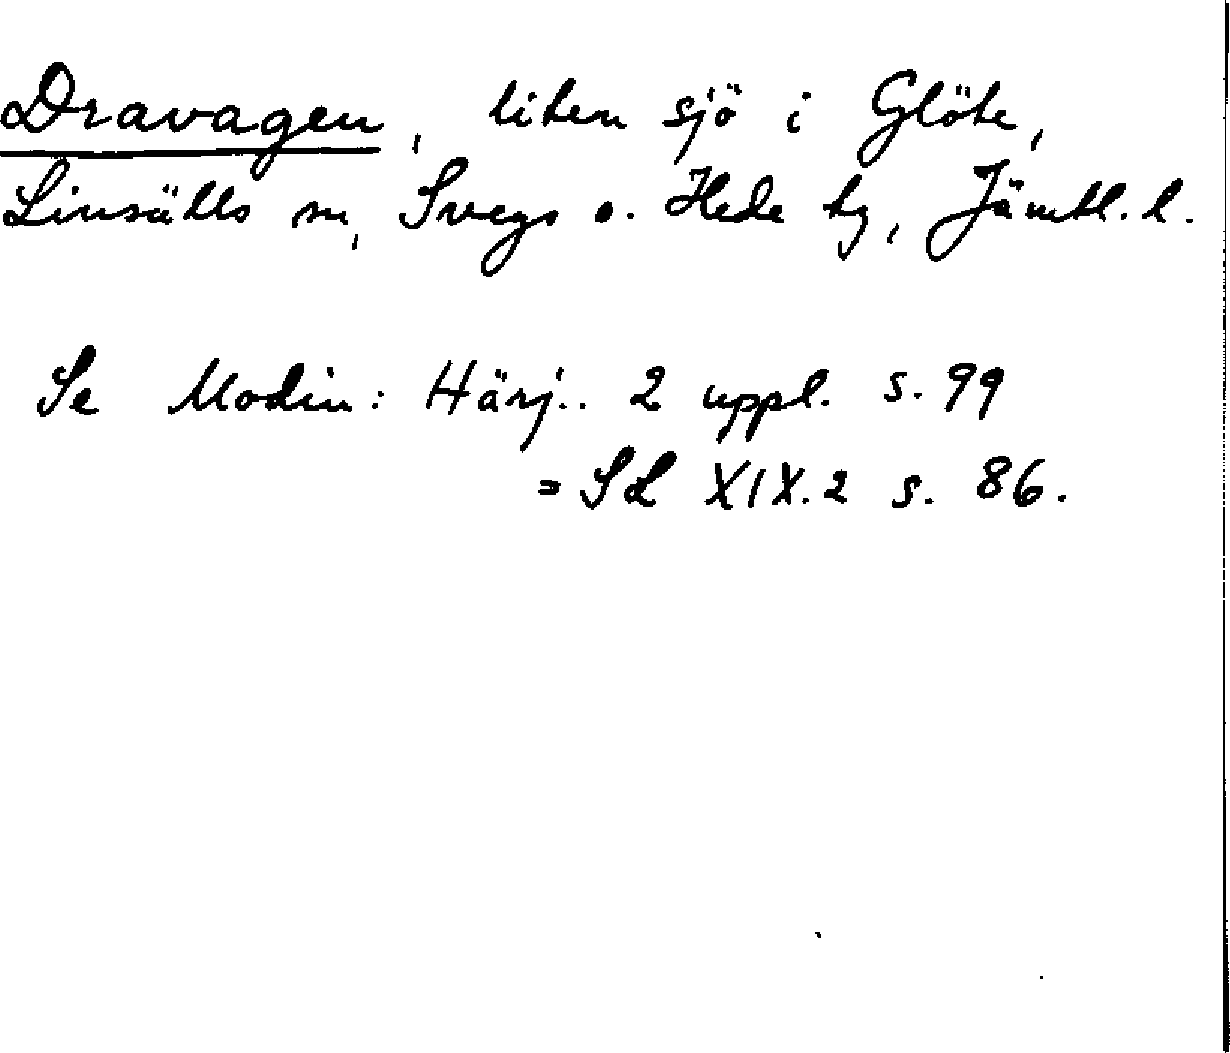 Dravagen, liten sjö i Glöte,
Linsälls sn, Svegs o. Hede tg, Jämtl. l.
Se Modin: Härj.. 2 uppl. s. 99
= SL XIX.2 s. 86.